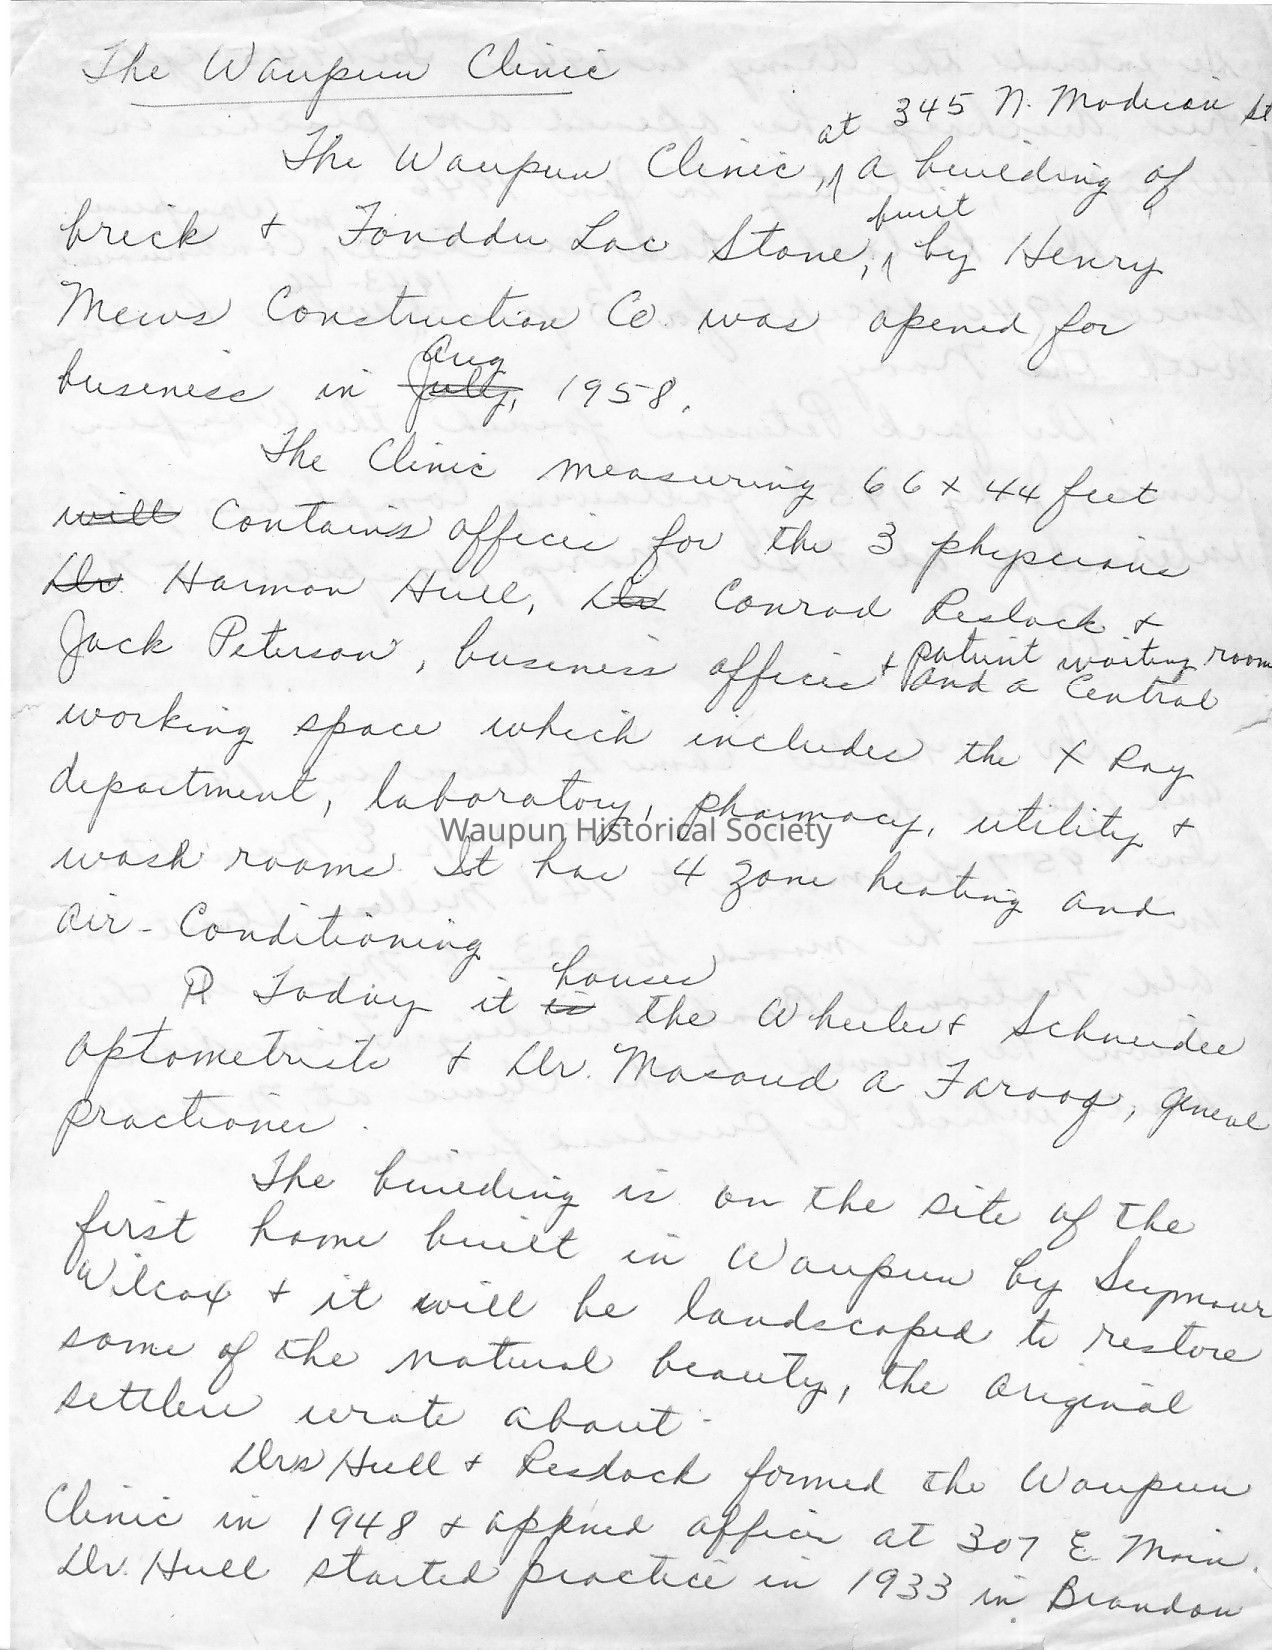 The Waupun Clinic
at 345 N. Madison St
The Waupun Clinic, a building of
built
brick + Fonddu Lac Stone, by Henry
Mews Construction Co. was opened for
Aug
business in July, 1958.
The Clinic measuring 66 x 44 feet
will contains offices for the 3 physicians
Dr. Harmon Hull, Dr Conrad Reslock +
Jack Peterson, business offices + patient waiting room
and a central
working space which includes the X Ray
department, laboratory, pharmacy, utility +
Waupun Historical Society
wash rooms. It has 4 zone heating and
air-conditioning
houses
Today it is the Wheeler + Schneider
optometrists + Dr. Masoud A Farooq, general
practioner.
The building is on the site of the
first home built in Waupun by Seymour
Wilcox + it will be landscaped to restore
some of the natural beauty, the original
settlers wrote about.
Drs Hull + Resdock formed the Waupun
Clinic in 1948 + oppened offices at 307 E. Main.
Dr. Hull started practice in 1933 in Brandon